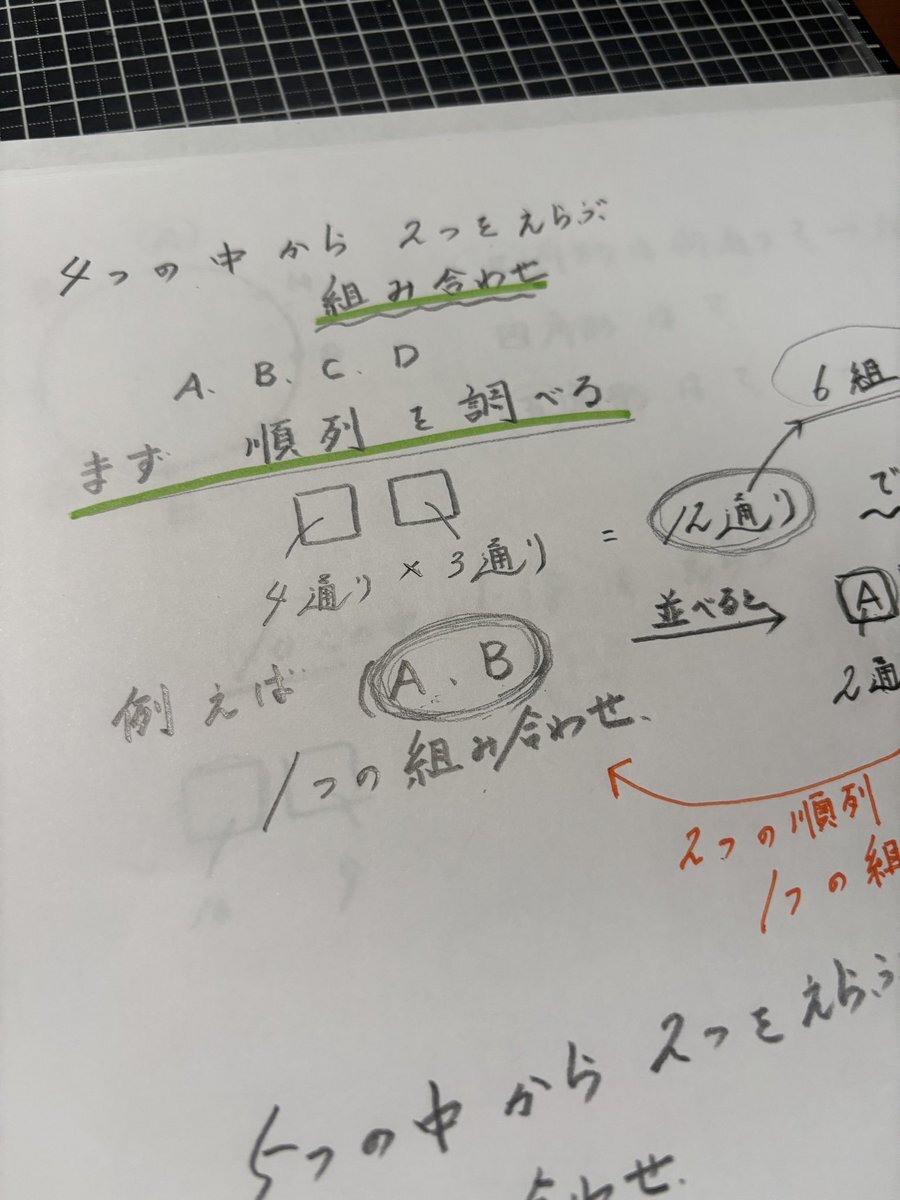 4つの中から 2つをえらぶ
組み合わせ
A、B、C、D
まず 順列を調べる
6組
4通り×3通り = 12通り
で
並べると
A
2通
例えば A、B
1つの組み合わせ、
2つの順列
1つの組
5つの中から 2つをえらぶ
合わせ、